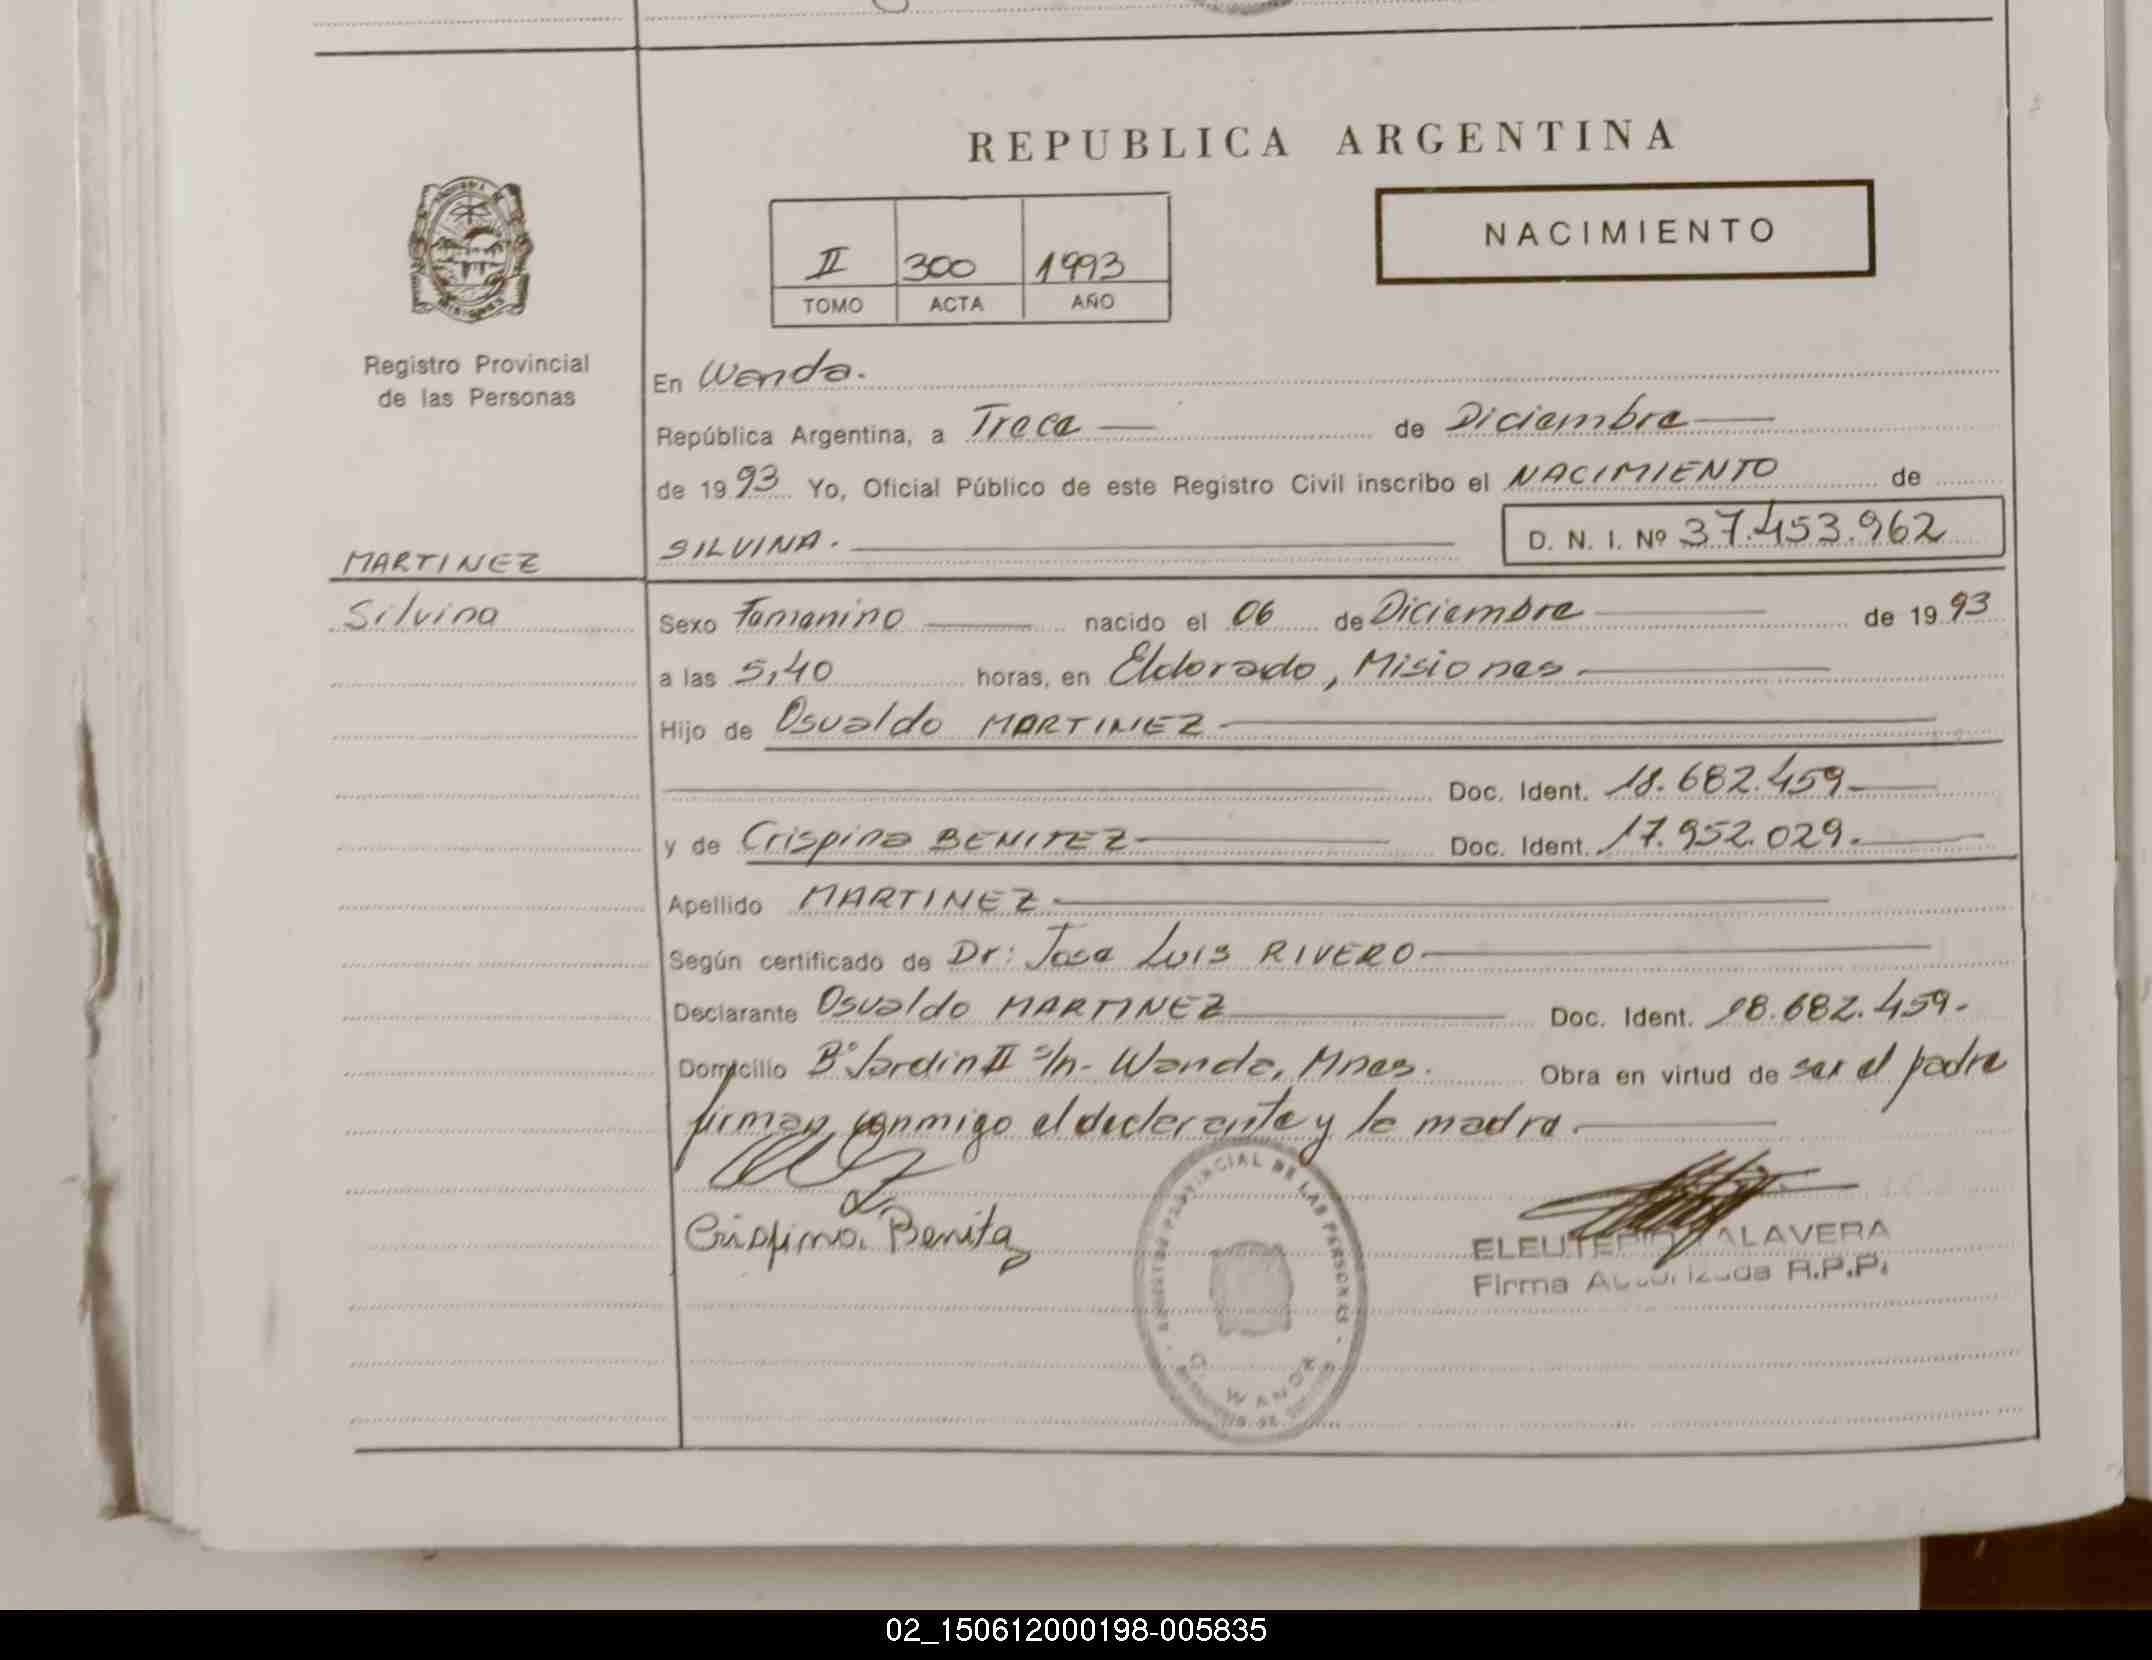 REPUBLICA ARGENTINA
NACIMIENTO
II 300 1993
TOMO ACTA AÑO
Registro Provincial
de las Personas
En Wanda.
República Argentina, a Trece de Diciembre
de 1993 Yo, Oficial Público de este Registro Civil inscribo el NACIMIENTO de
SILVINA. D. N. I. Nº 37.453.962
MARTINEZ
Silvina
Sexo Femenino nacido el 06 de Diciembre de 1993
a las 5,40 horas, en Eldorado, Misiones
Hijo de Osvaldo MARTINEZ
Doc. Ident. 18.682.459
y de Crispina BENITEZ Doc. Ident. 17.952.029.
Apellido MARTINEZ
Según certificado de Dr: Jose Luis RIVERO
Declarante Osvaldo MARTINEZ Doc. Ident. 18.682.459.
Domicilio Bº Jardin II s/n- Wanda, Mnes. Obra en virtud de ser el padre
firman conmigo el declarante y la madre.
Crispina Benitez
REGISTRO PROVINCIAL DE LAS PERSONAS
WANDA
ELEUTERIO ALAVERA
Firma Autorizada R.P.P.
02_150612000198-005835